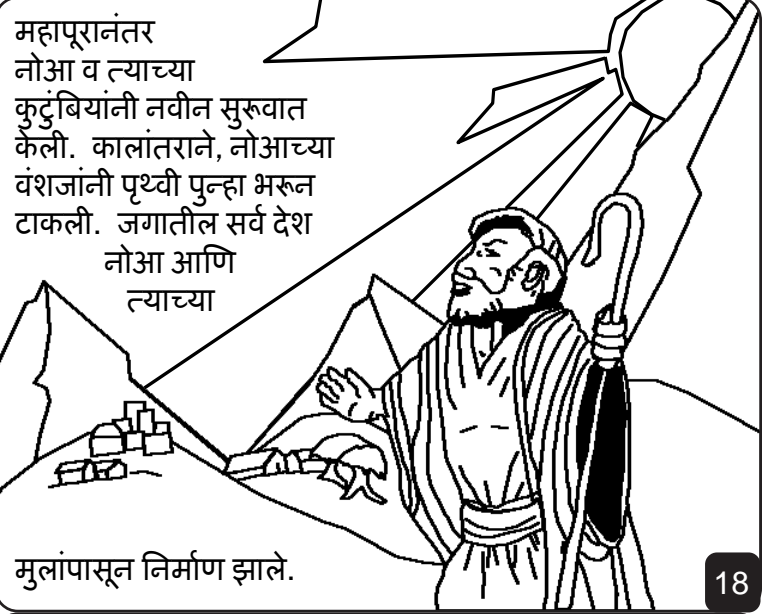 महापूरानंतर
नोआ व त्याच्या
कुटुंबियांनी नवीन सुरूवात
केली. कालांतराने, नोआच्या
वंशजांनी पृथ्वी पुन्हा भरून
टाकली. जगातील सर्व देश
नोआ आणि
त्याच्या
मुलांपासून निर्माण झाले.
18